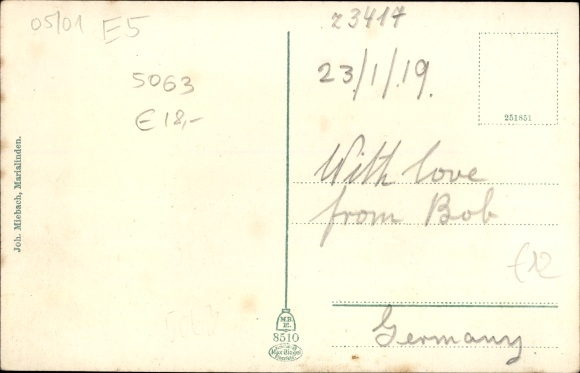 05/01 E5
5063
€ 18,-
Joh. Miebach, Marialinden.
z3417
23/1/19.
251851
With love
from Bob
€12
M.B.
8510
Germany